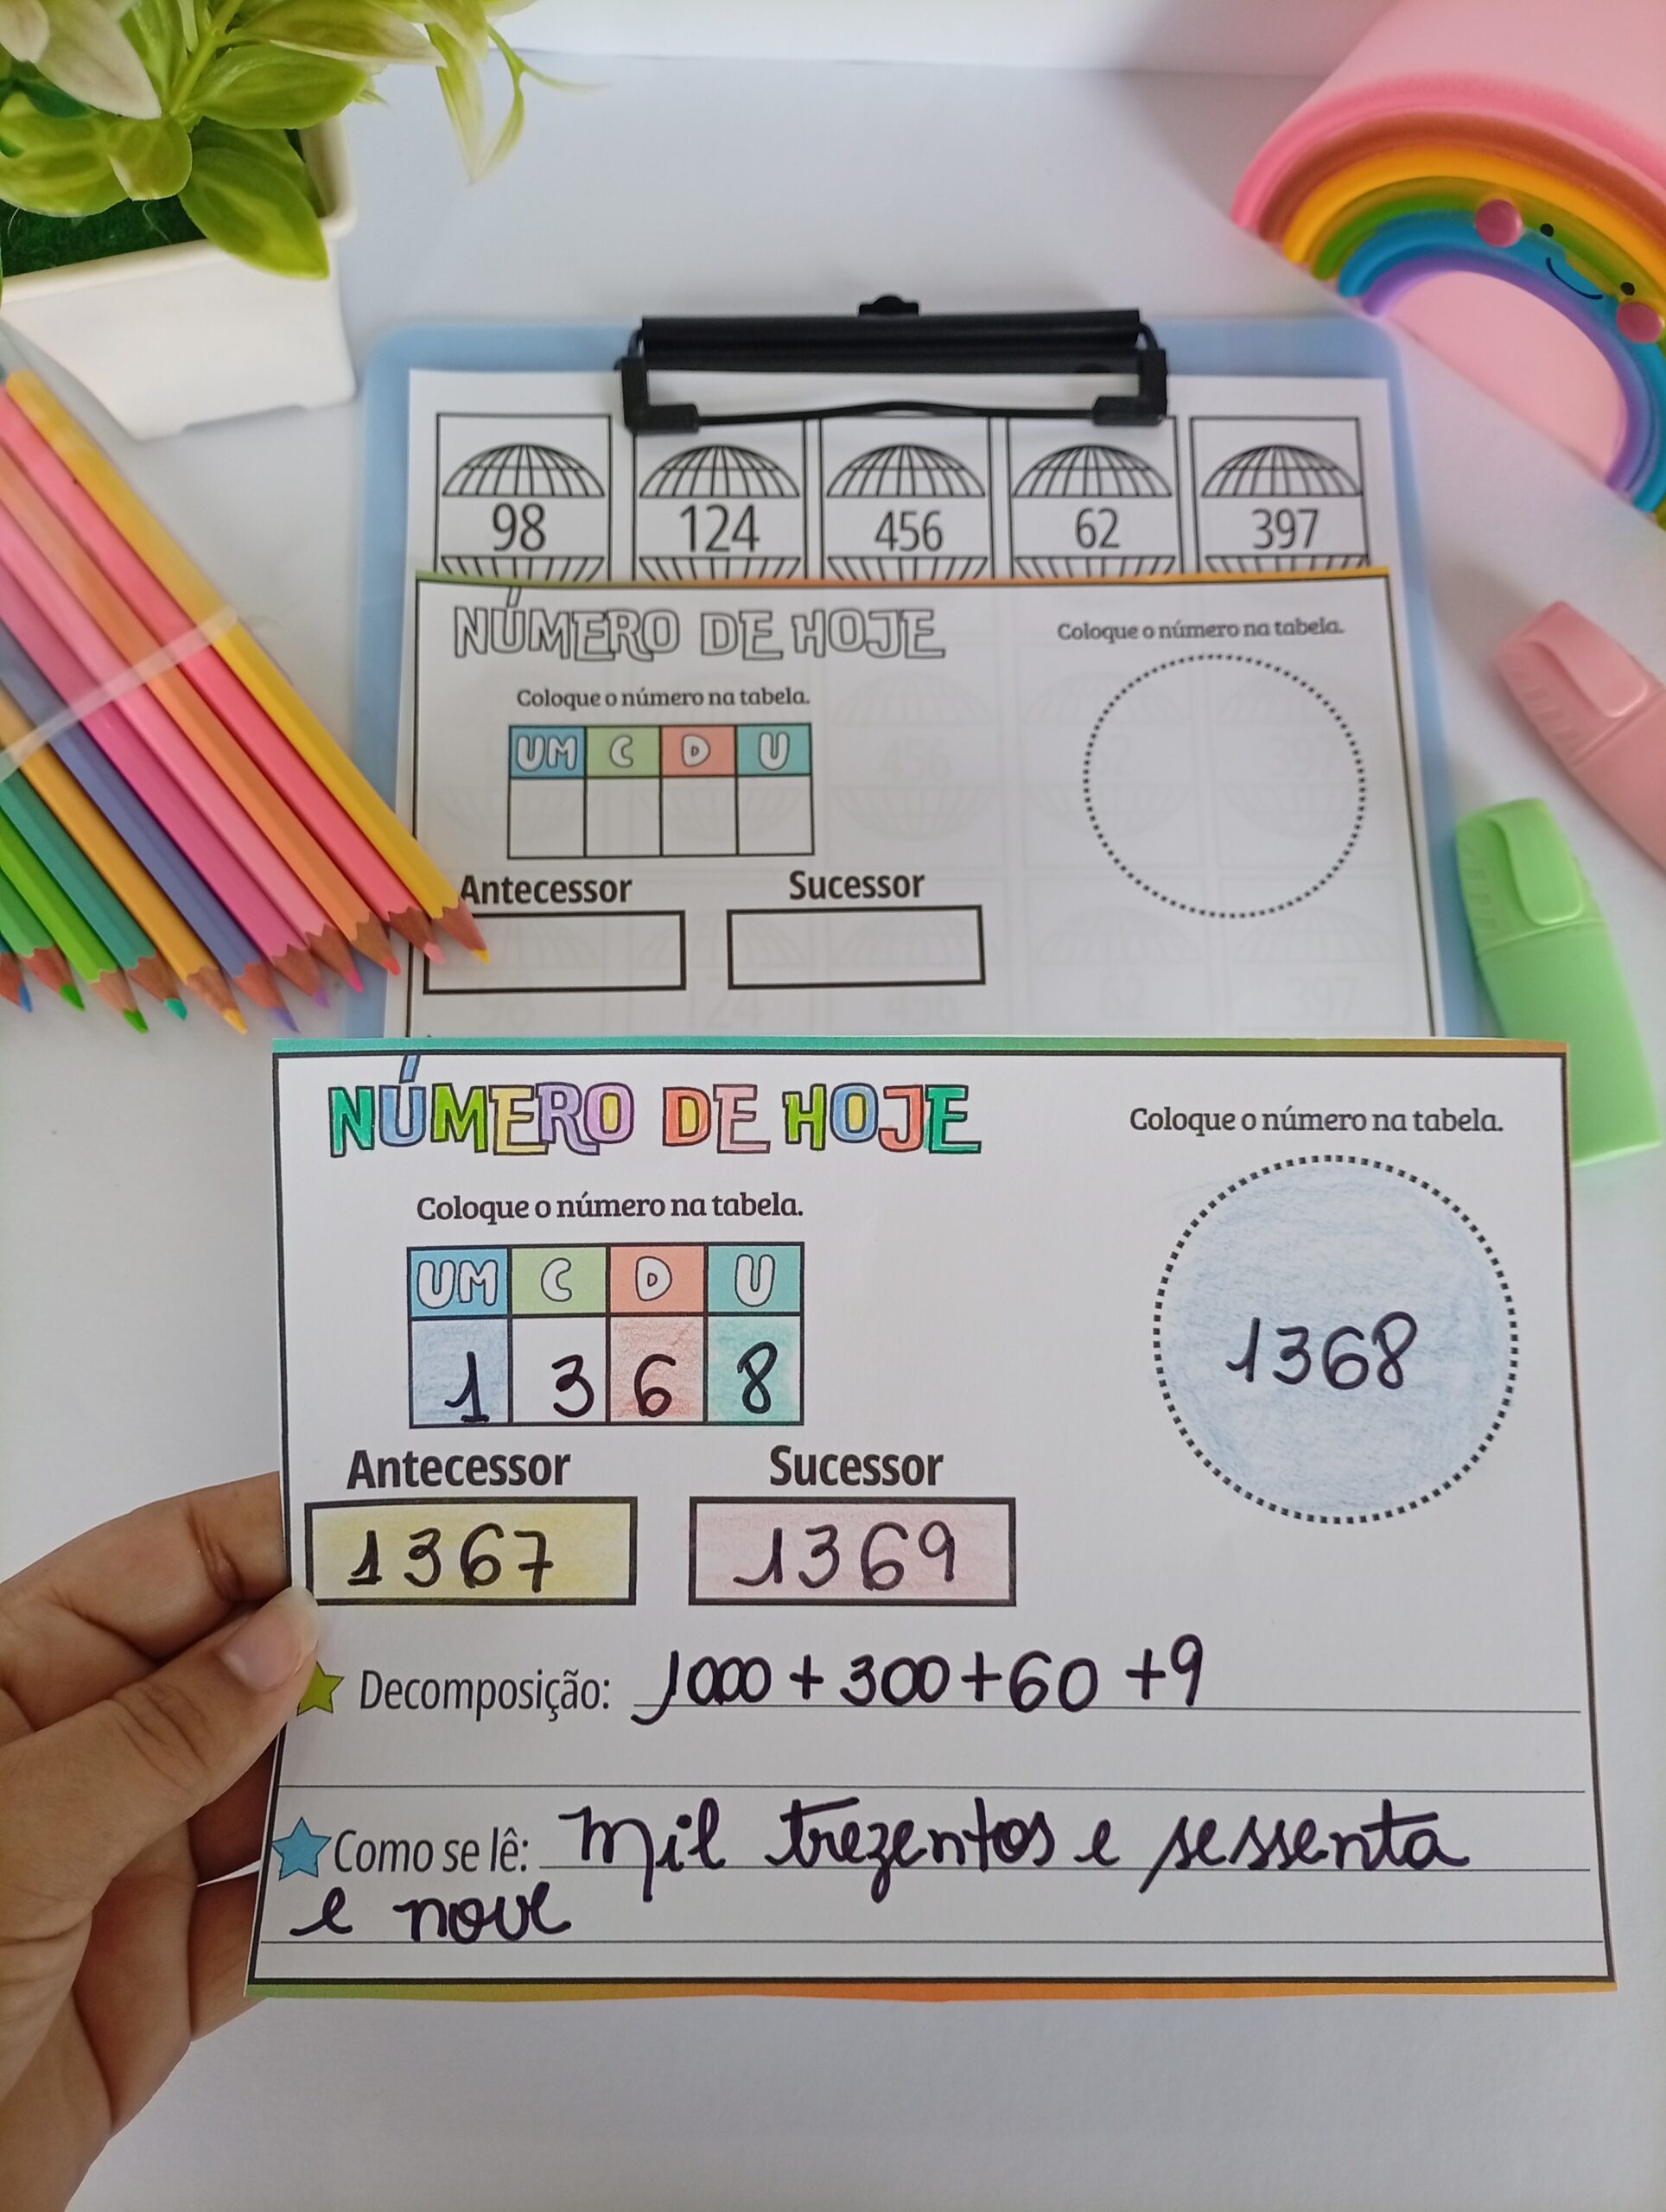 98 124 456 62 397
NÚMERO DE HOJE
Coloque o número na tabela.
Coloque o número na tabela.
UM C D U
Antecessor Sucessor
NÚMERO DE HOJE
Coloque o número na tabela.
Coloque o número na tabela.
UM C D U
1 3 6 8
1368
Antecessor Sucessor
1367 1369
Decomposição: 1000 + 300 + 60 + 9
Como se lê: mil trezentos e sessenta
e nove